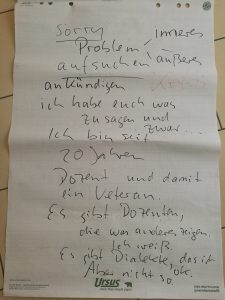 Sorry
Problem inneres
aufsuchen äußeres
ankündigen
ich habe euch was
zu sagen und
zwar...
Ich bin seit
20 Jahren
Dozent und damit
ein Veteran.
Es gibt Dozenten,
die was anderes zeigen.
Ich weiß.
Es gibt Dialekte, das ist
ok.
Aber nicht so.
Ursus